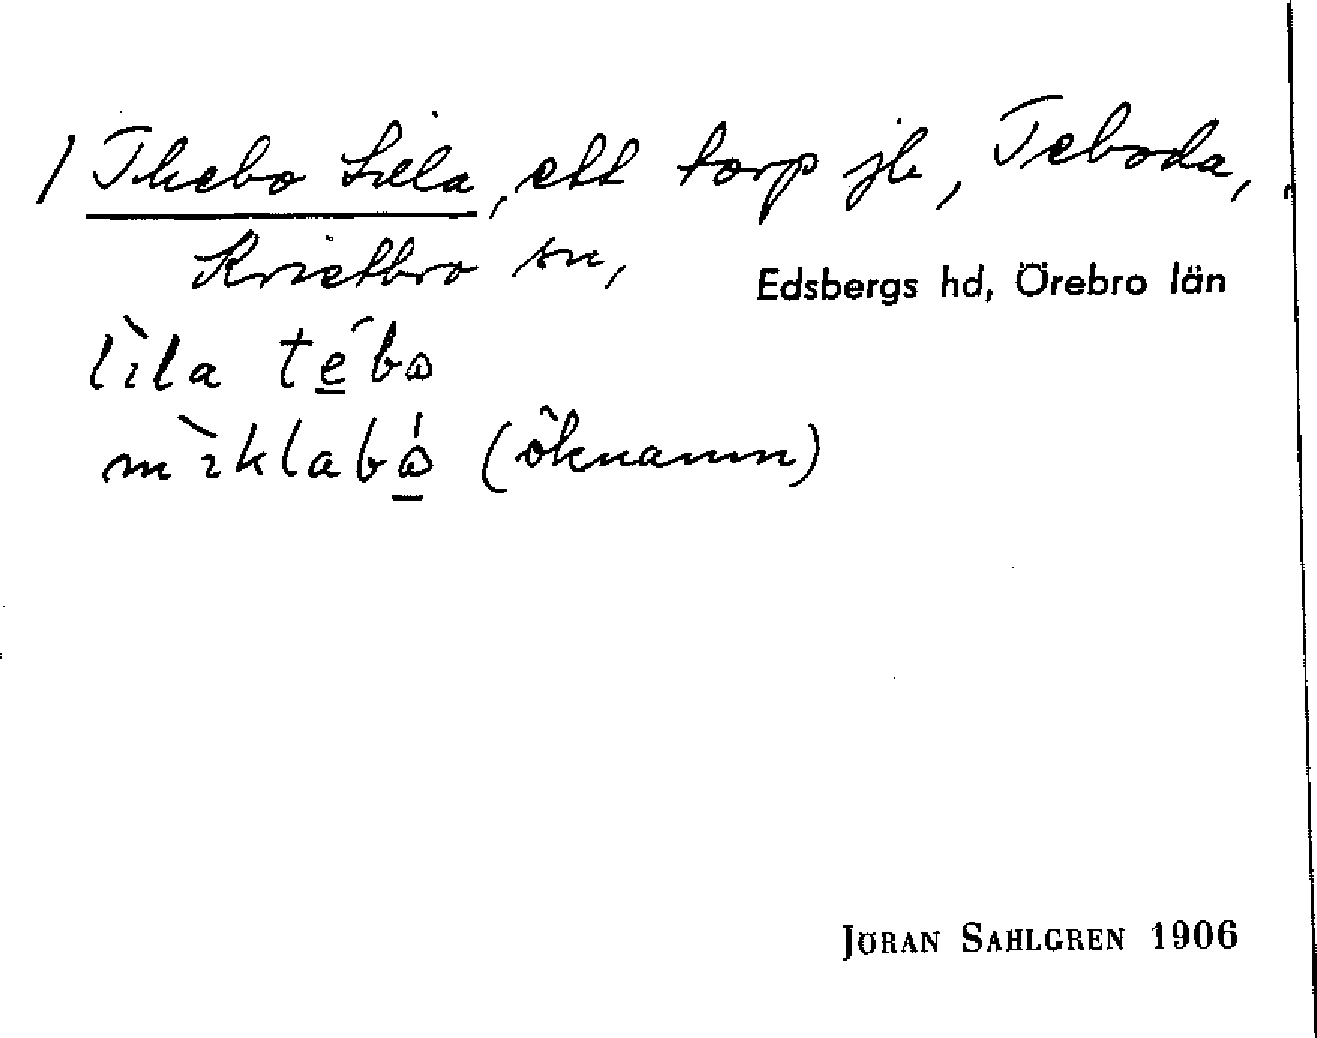 / Thebo Lilla, ett torp jb, Teboda,
Kvistbro sn, Edsbergs hd, Örebro län
lìla tébω
mìklabώ (öknamn)
JÖRAN SAHLGREN 1906